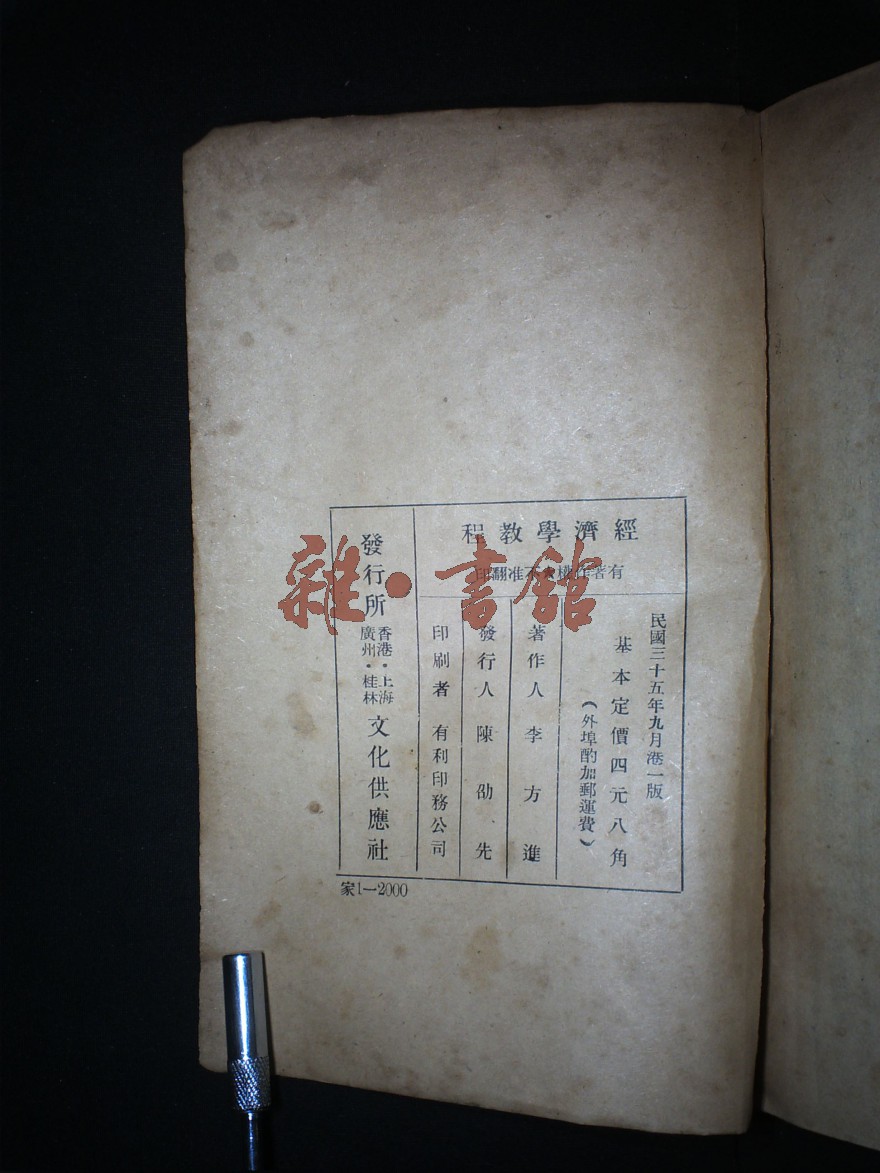 經濟學教程
有著作權★不准翻印
民國三十五年九月港一版
基本定價四元八角
（外埠酌加郵運費）
著作人 李方進
發行人 陳劭先
印刷者 有利印務公司
發行所 香港·上海 廣州·桂林 文化供應社
家1—2000
雜·書館